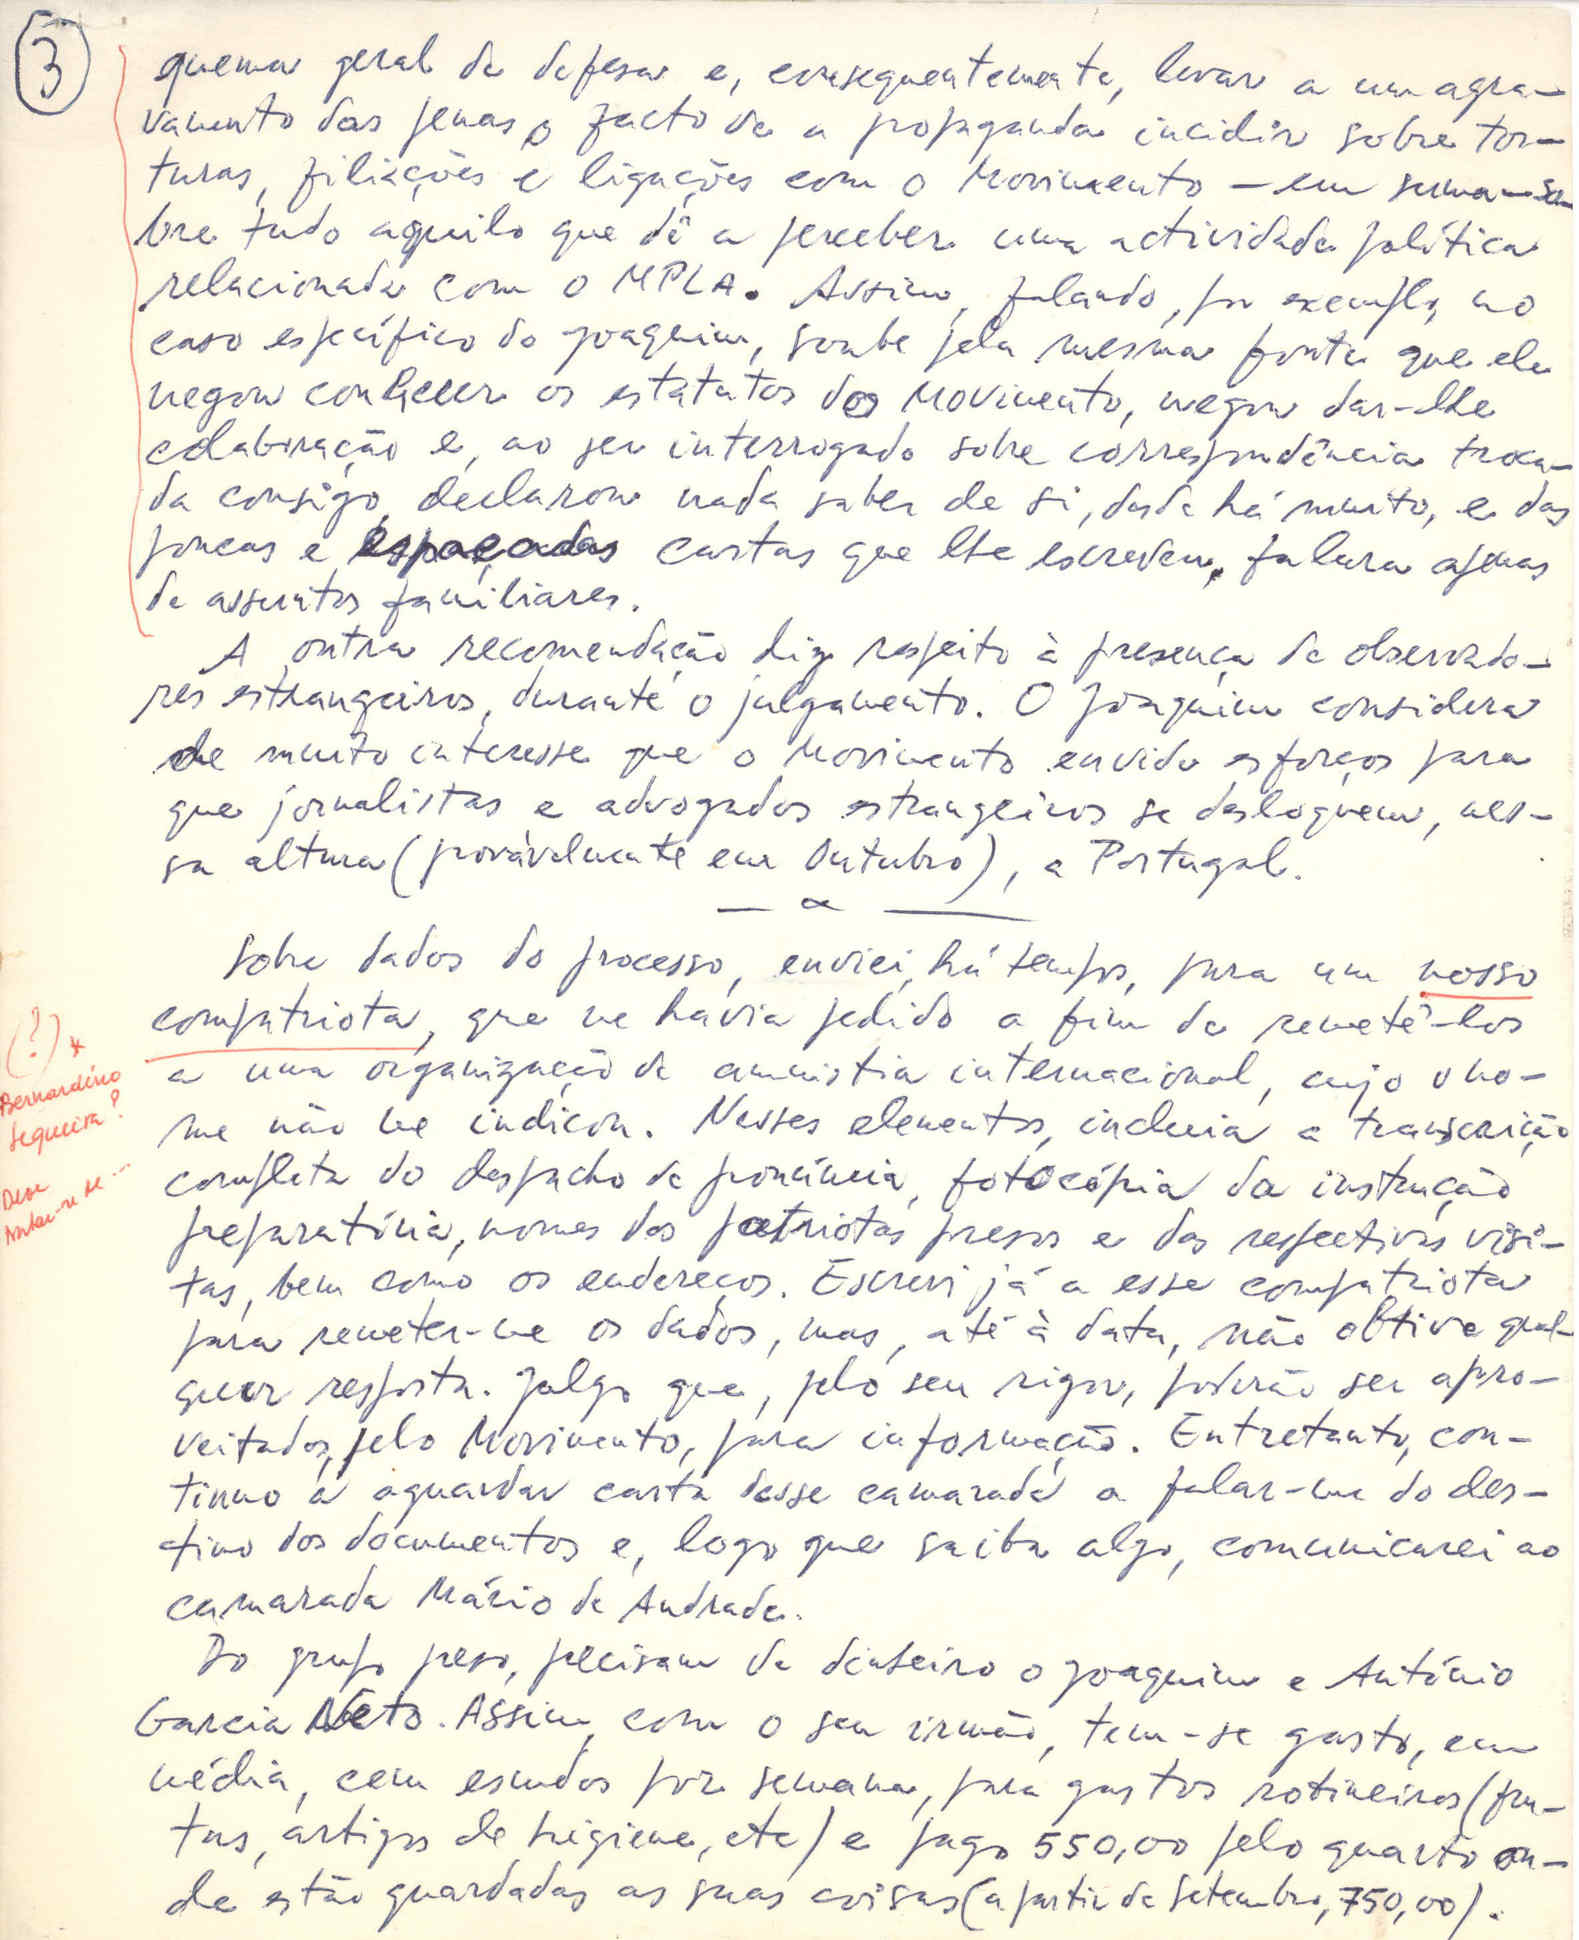 3
quema geral da defesa e, consequentemente, levar a um agra-
vamento das penas o facto de a propaganda incidir sobre tor-
turas, filiações e ligações com o Movimento — em suma — so-
bre tudo aquilo que dê a perceber uma actividade política
relacionada com o MPLA. Assim, falando, por exemplo, no
caso específico do Joaquim, soube pela mesma fonte que ele
negou conhecer os estatutos do Movimento, negou dar-lhe
colaboração e, ao ser interrogado sobre correspondência troca-
da consigo, declarou nada saber de si, desde há muito, e das
poucas e espaçadas cartas que lhe escreveu, falara apenas
de assuntos familiares.
A outra recomendação diz respeito à presença de observado-
res estrangeiros, durante o julgamento. O Joaquim considera
de muito interesse que o Movimento envide esforços para
que jornalistas e advogados estrangeiros se desloquem, nes-
sa altura (provàvelmente em Outubro), a Portugal.
Sobre dados do processo, enviei, há tempos, para um nosso
compatriota, que me havia pedido a fim de remetê-los
a uma organização de amnistia internacional, cujo o no-
me não me indicou. Nesses elementos, incluia a transcrição
completa do despacho de pronúncia, fotocópia da instrução
preparatória, nomes dos patriotas presos e das respectivas visi-
tas, bem como os endereços. Escrevi já a esse compatriota
para remeter-me os dados, mas, até à data, não obtive qual-
quer resposta. Julgo que, pelo seu rigor, poderão ser apro-
veitados, pelo Movimento, para informação. Entretanto, con-
tinuo a aguardar carta desse camarada a falar-me do des-
tino dos documentos e, logo que saiba algo, comunicarei ao
camarada Mário de Andrade.
Do grupo preso, precisam de dinheiro o Joaquim e António
Garcia Neto. Assim, com o seu irmão, tem-se gasto, em
média, cem escudos por semana, para gastos rotineiros (fru-
tas, artigos de higiene, etc) e pago 550,00 pelo quarto on-
de estão guardadas as suas coisas (a partir de Setembro, 750,00).
(?) *
Bernardino
Sequeira?
Deve